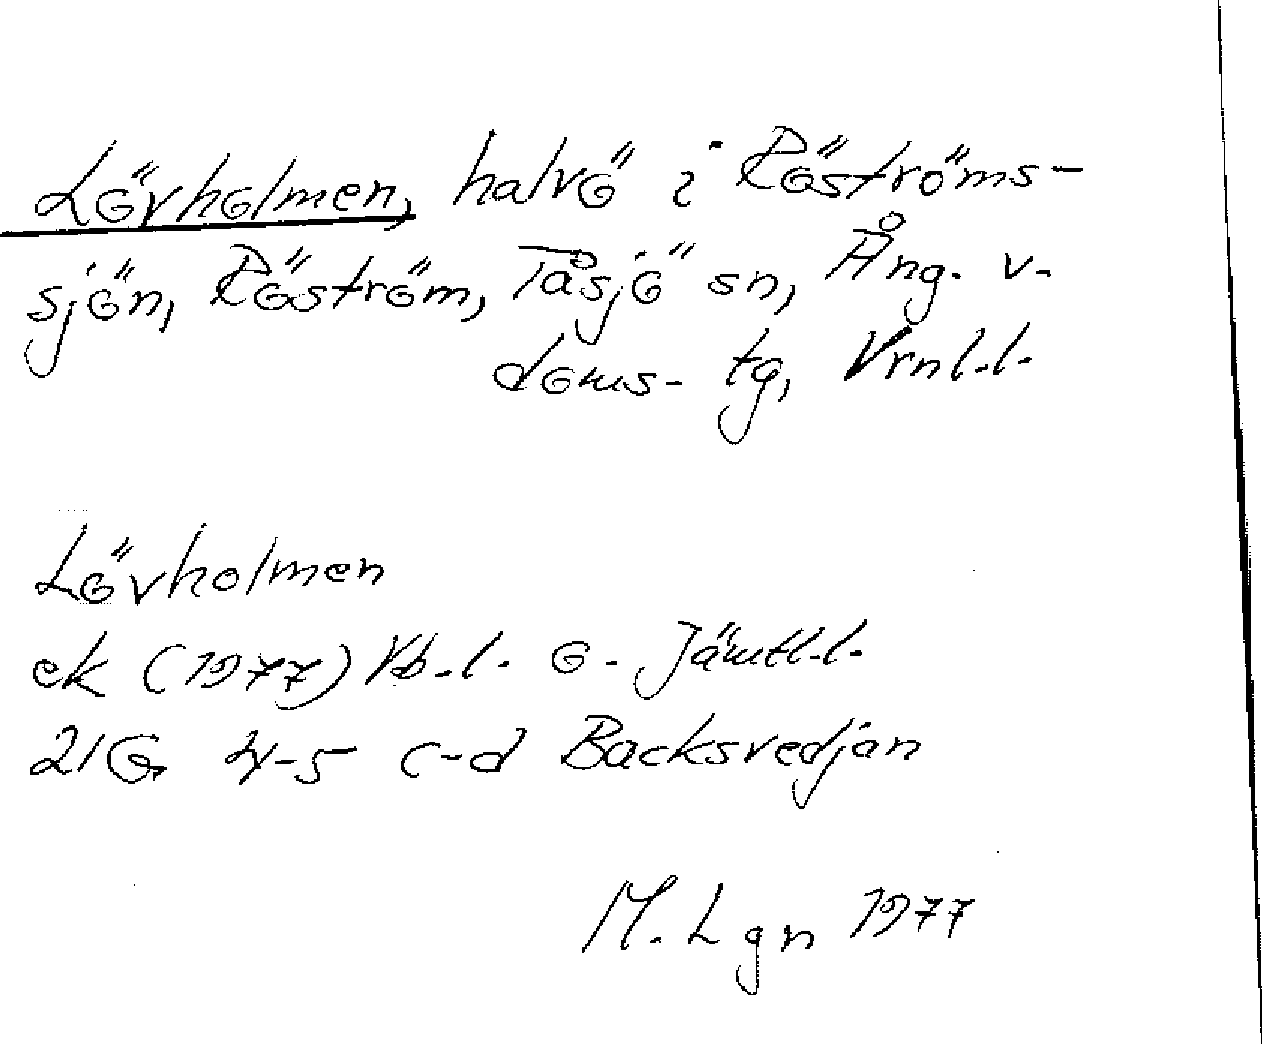 Lövholmen, halvö i Röströms-
sjön, Röström, Tåsjö sn, Ång. v-
doms- tg, Vrnl.l.
Lövholmen
ek (1977) Vb.l. o. Jämtl.l.
21G 4-5 c-d Backsvedjan
M. Lgn 1977